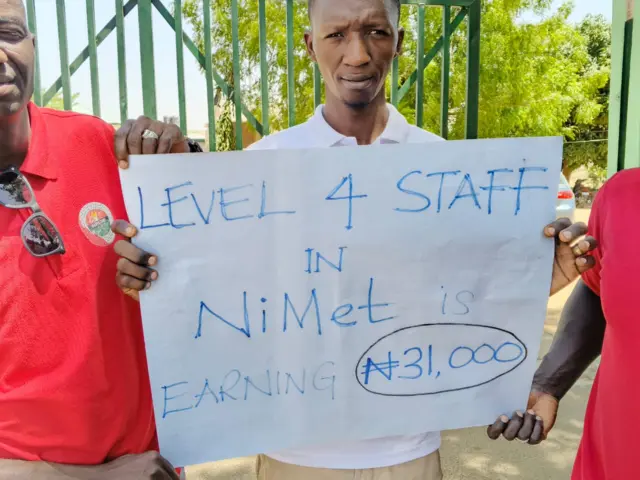 LEVEL 4 STAFF
IN
NiMet is
EARNING ₦31,000